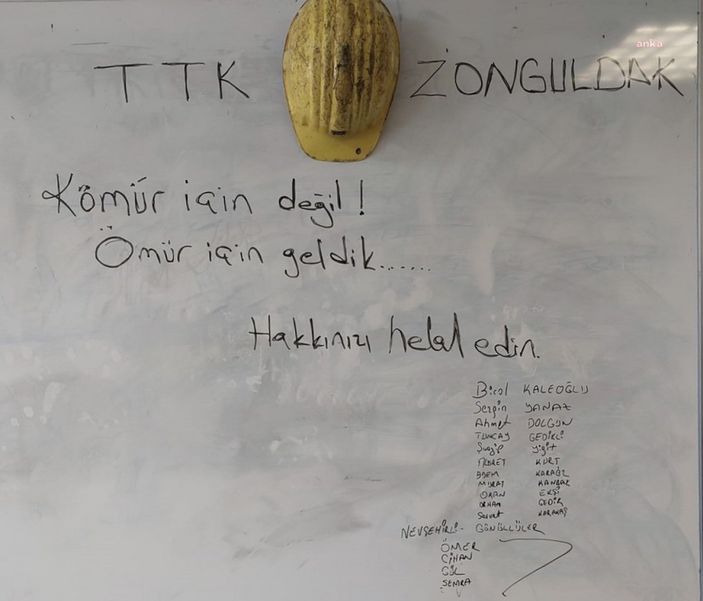 anka
TTK ZONGULDAK
Kömür için değil!
Ömür için geldik.......
Hakkınızı helal edin.
Birol KALEOĞLU
Sezgin YANAZ
Ahmet DOLGUN
TUNCAY GEDİKLİ
Şuayip Yiğit
KURT
ADEM KARAGÖZ
MURAT KANBAZ
EKŞİ
ORHAN GEDİK
Servet KARAKAŞ
NEVŞEHİRLİ - GÖNÜLLÜLER
ÖMER
CİHAN
GÜL
SEMRA